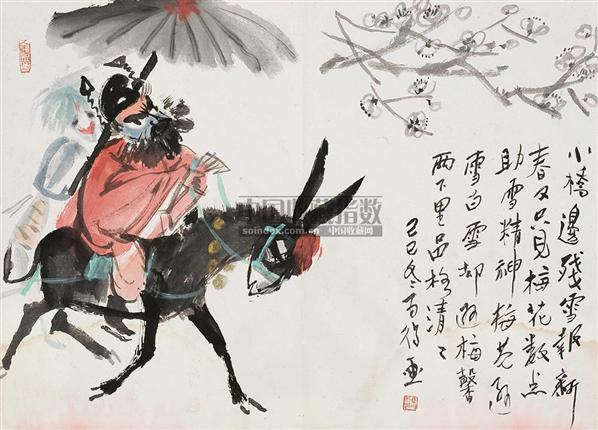 小橋邊殘雪報新
春又只見梅花數点
助雪精神梅花遜
雪白雪却遜梅馨
两下里品格清〻
己巳冬画
中国收藏指数
soindex.com.cn 中国收藏网